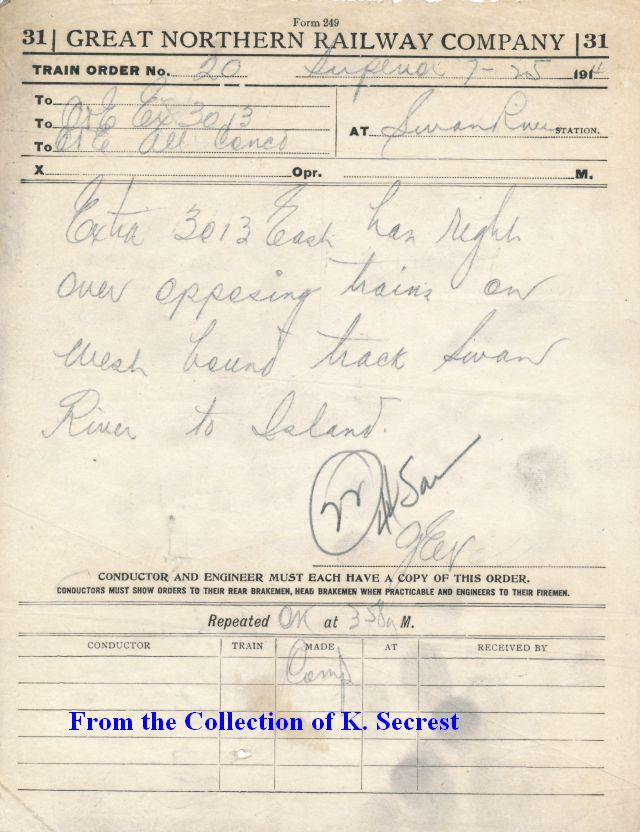 Form 249
31 | GREAT NORTHERN RAILWAY COMPANY | 31
TRAIN ORDER No. 20 Superior 7-25 1914
To
To C&E Ex 3013
To C&E All Conc
AT Swan River STATION.
X Opr. M.
Extra 3013 East has right
over opposing trains on
west bound track Swan
River to Island.
GEV
CONDUCTOR AND ENGINEER MUST EACH HAVE A COPY OF THIS ORDER.
CONDUCTORS MUST SHOW ORDERS TO THEIR REAR BRAKEMEN, HEAD BRAKEMEN WHEN PRACTICABLE AND ENGINEERS TO THEIR FIREMEN.
Repeated OK at 3 58 a M.
CONDUCTOR TRAIN MADE AT RECEIVED BY
Comp
From the Collection of K. Secrest